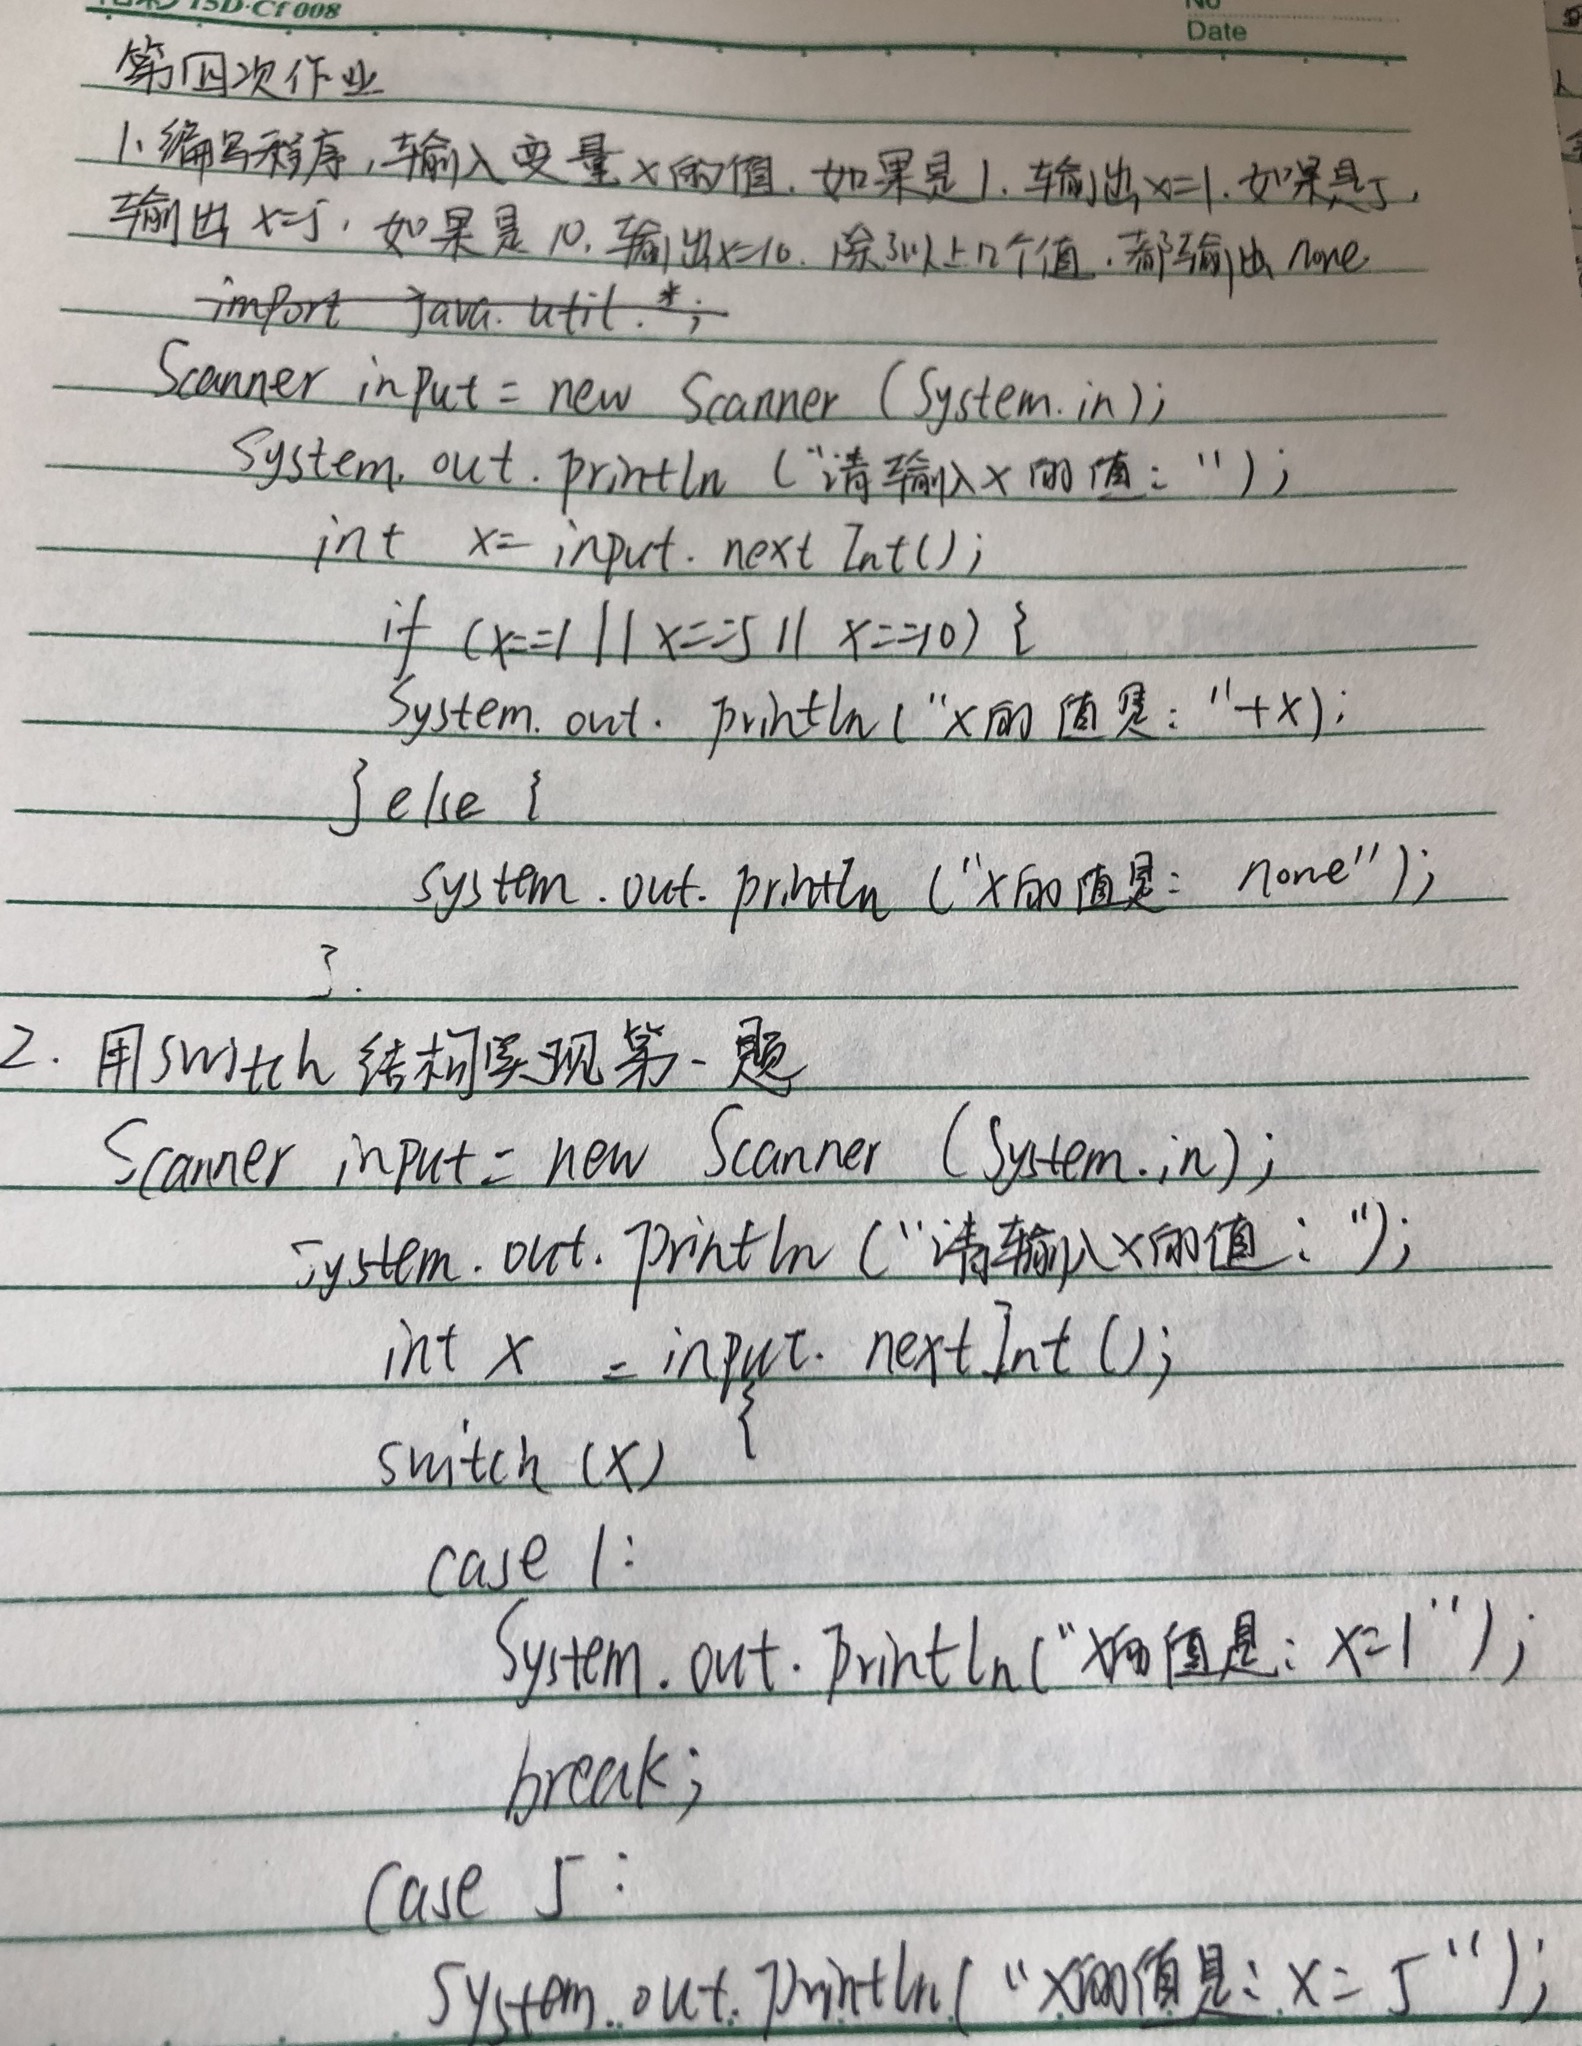 TSD·Cf008
No
Date
第四次作业
1.编写程序,输入变量x的值.如果是1.输出x=1.如果是5,
输出x=5,如果是10,输出x=10.除了以上几个值,都输出none
import java.util.*;
Scanner input= new Scanner (System.in);
System.out.println ("请输入x的值:");
int x= input.nextInt();
if (x==1 || x==5 || x==10) {
System.out.println ("x的值是:"+x);
}else {
system.out.println ("x的值是: none");
}.
2.用switch结构实现第一题
Scanner input= new Scanner (System.in);
System.out.println ("请输入x的值:");
int x = input.nextInt ();
switch (x) {
case 1:
System.out.println("x的值是: x=1");
break;
case 5:
System.out.println("x的值是: x=5");